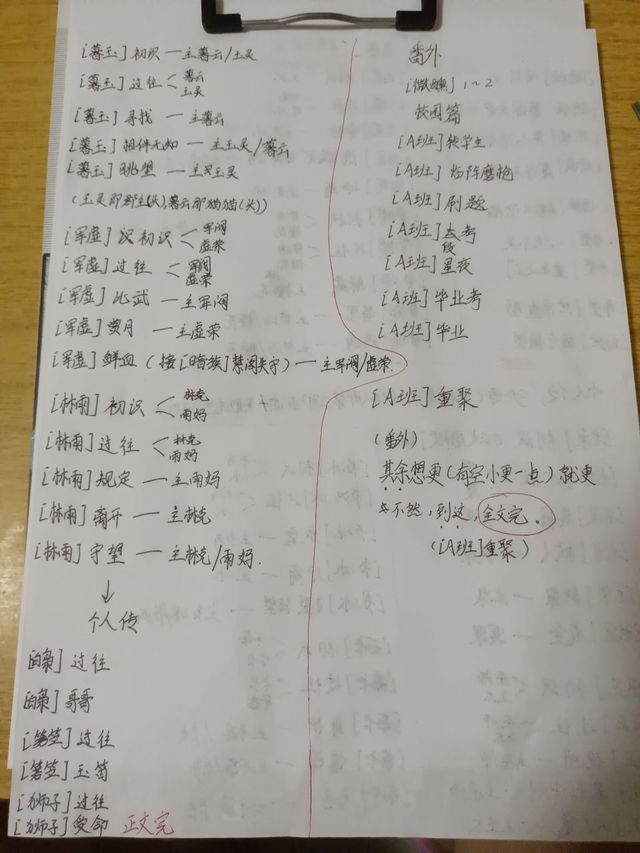 [暮玉] 初识 — 主暮云/玉灵
[暮玉] 过往 < 暮云 玉灵
[暮玉] 寻找 — 主暮云
[暮玉] 相伴无知 — 主玉灵/暮云
[暮玉] 眺望 — 主玉灵
(玉灵即郡主(头),暮云即猫猫(头))
[军虚] 初识 < 军阀 虚荣
[军虚] 过往 < 军阀 虚荣
[军虚] 比武 — 主军阀
[军虚] 赏月 — 主虚荣
[军虚] 鲜血 (接[暗族]禁阁失守) — 主军阀/虚荣.
[林雨] 初识 < 林克 雨妈
[林雨] 过往 < 林克 雨妈
[林雨] 规定 — 主雨妈
[林雨] 离开 — 主林克
[林雨] 守望 — 主林克/雨妈.
↓
个人传
过往
哥哥
过往
玉笛
[狮子] 过往
[狮子] 使命 正文完
番外
[微醺] 1~2
校园篇
[A班] 转学生
[A班] 临阵磨枪
[A班] 刷题
[A班] 考
段
[A班] 星夜
[A班] 毕业考
[A班] 毕业
[A班] 重聚
(番外)
其余想更(有空小更一点)就更
不然,到这,全文完。
([A班]重聚)